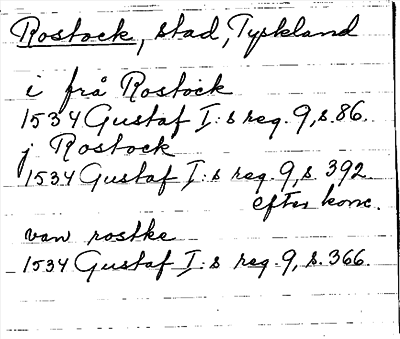 Rostock, stad, Tyskland
i frå Rostock
1534 Gustaf I:s reg. 9, s. 86.
j Rostock
1534 Gustaf I:s reg. 9, s. 392
efter konc.
van rostke
1534 Gustaf I:s reg. 9, s. 366.